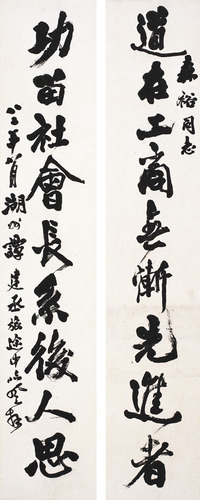 裕同志
道在工商無慚先進者
功留社會長系後人思
八三年八月湖州譚建丞旅途中以